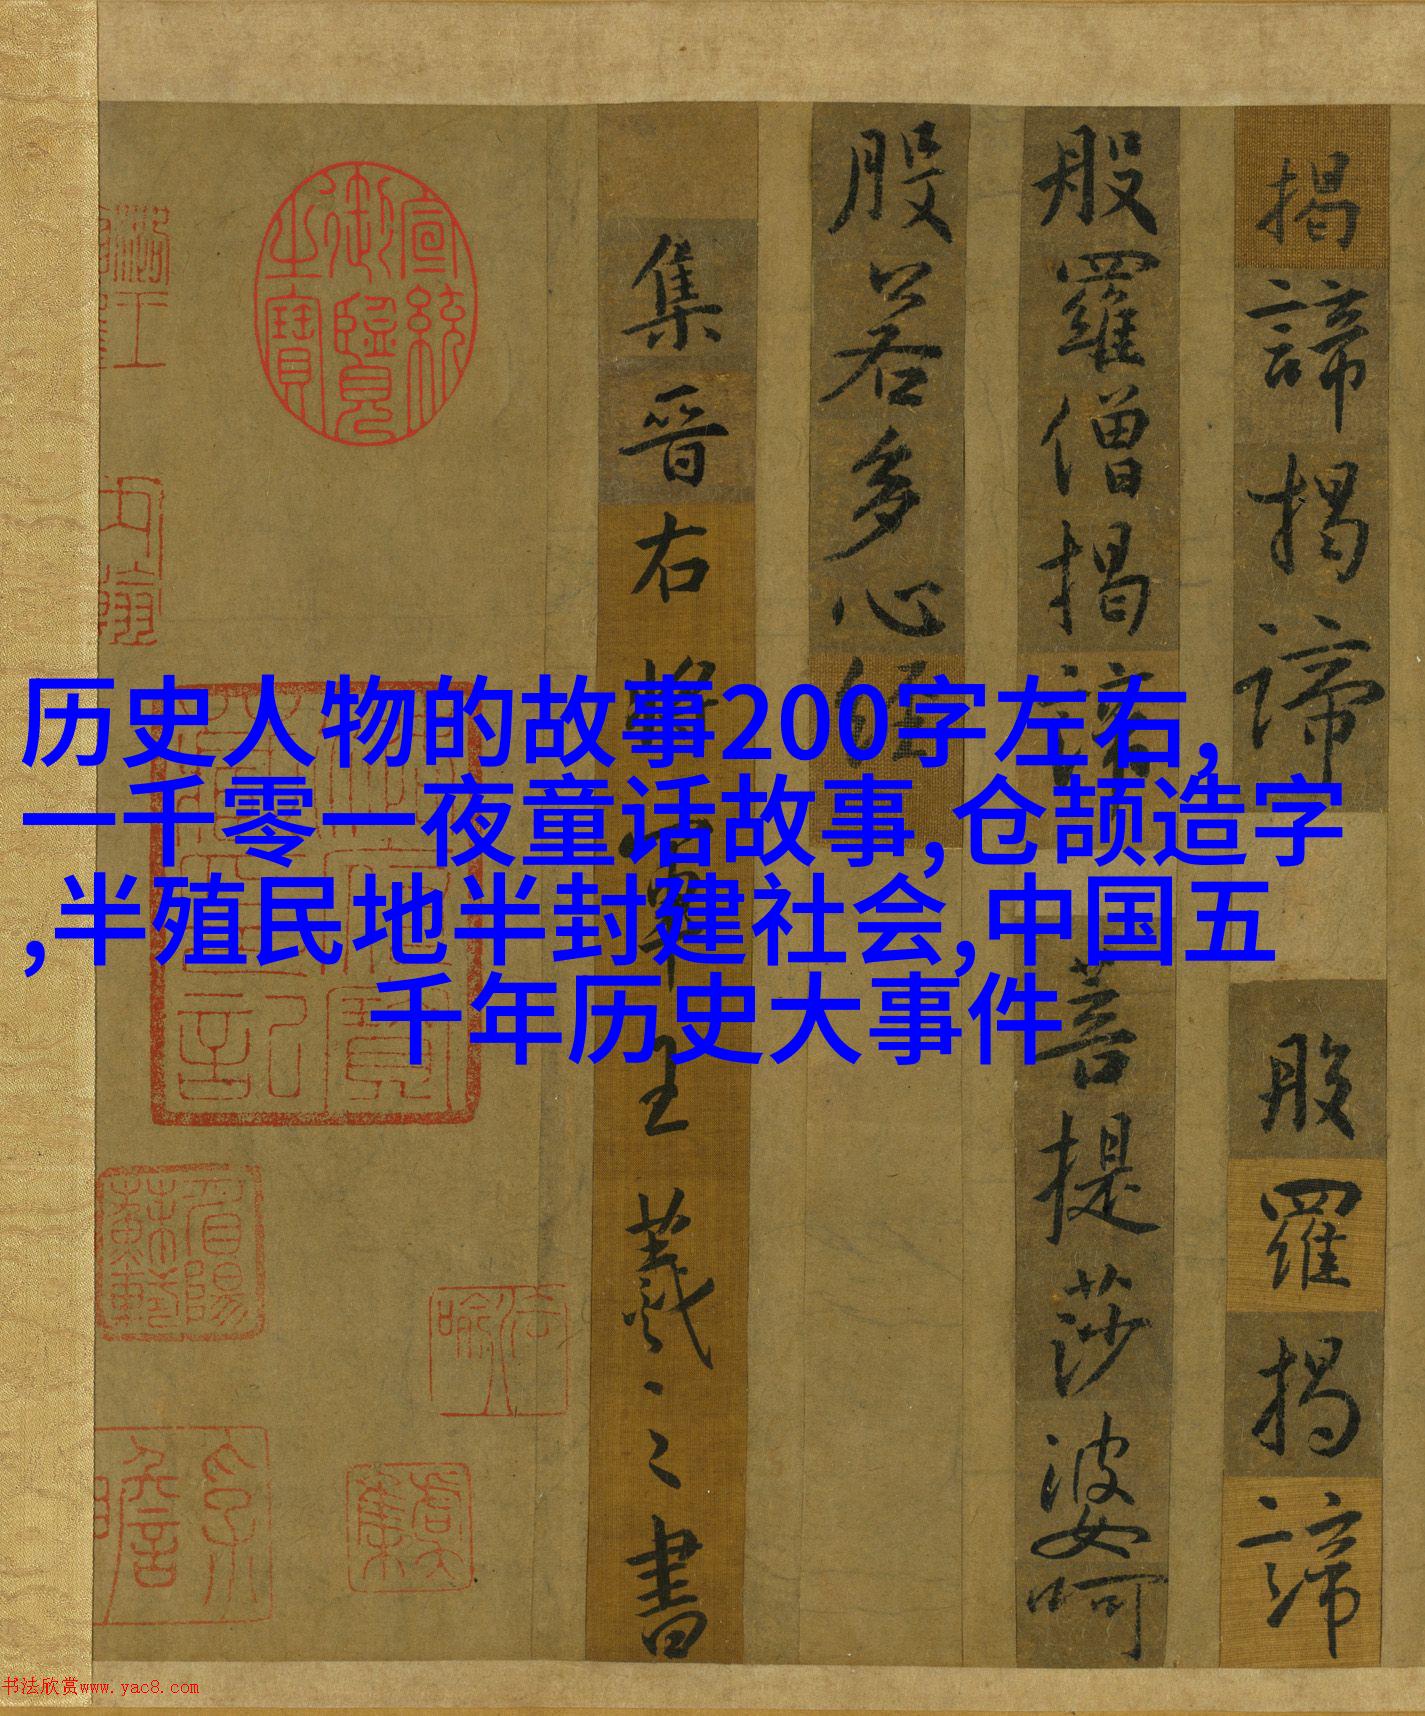 揭諦揭諦般羅揭諦
般羅僧揭諦菩提莎婆呵
般若多心經
集晉右將軍王羲之書
宣統御覽之寶
历史人物的故事200字左右,
一千零一夜童话故事,仓颉造字
,半殖民地半封建社会,中国五
千年历史大事件
书法欣赏www.yac8.com